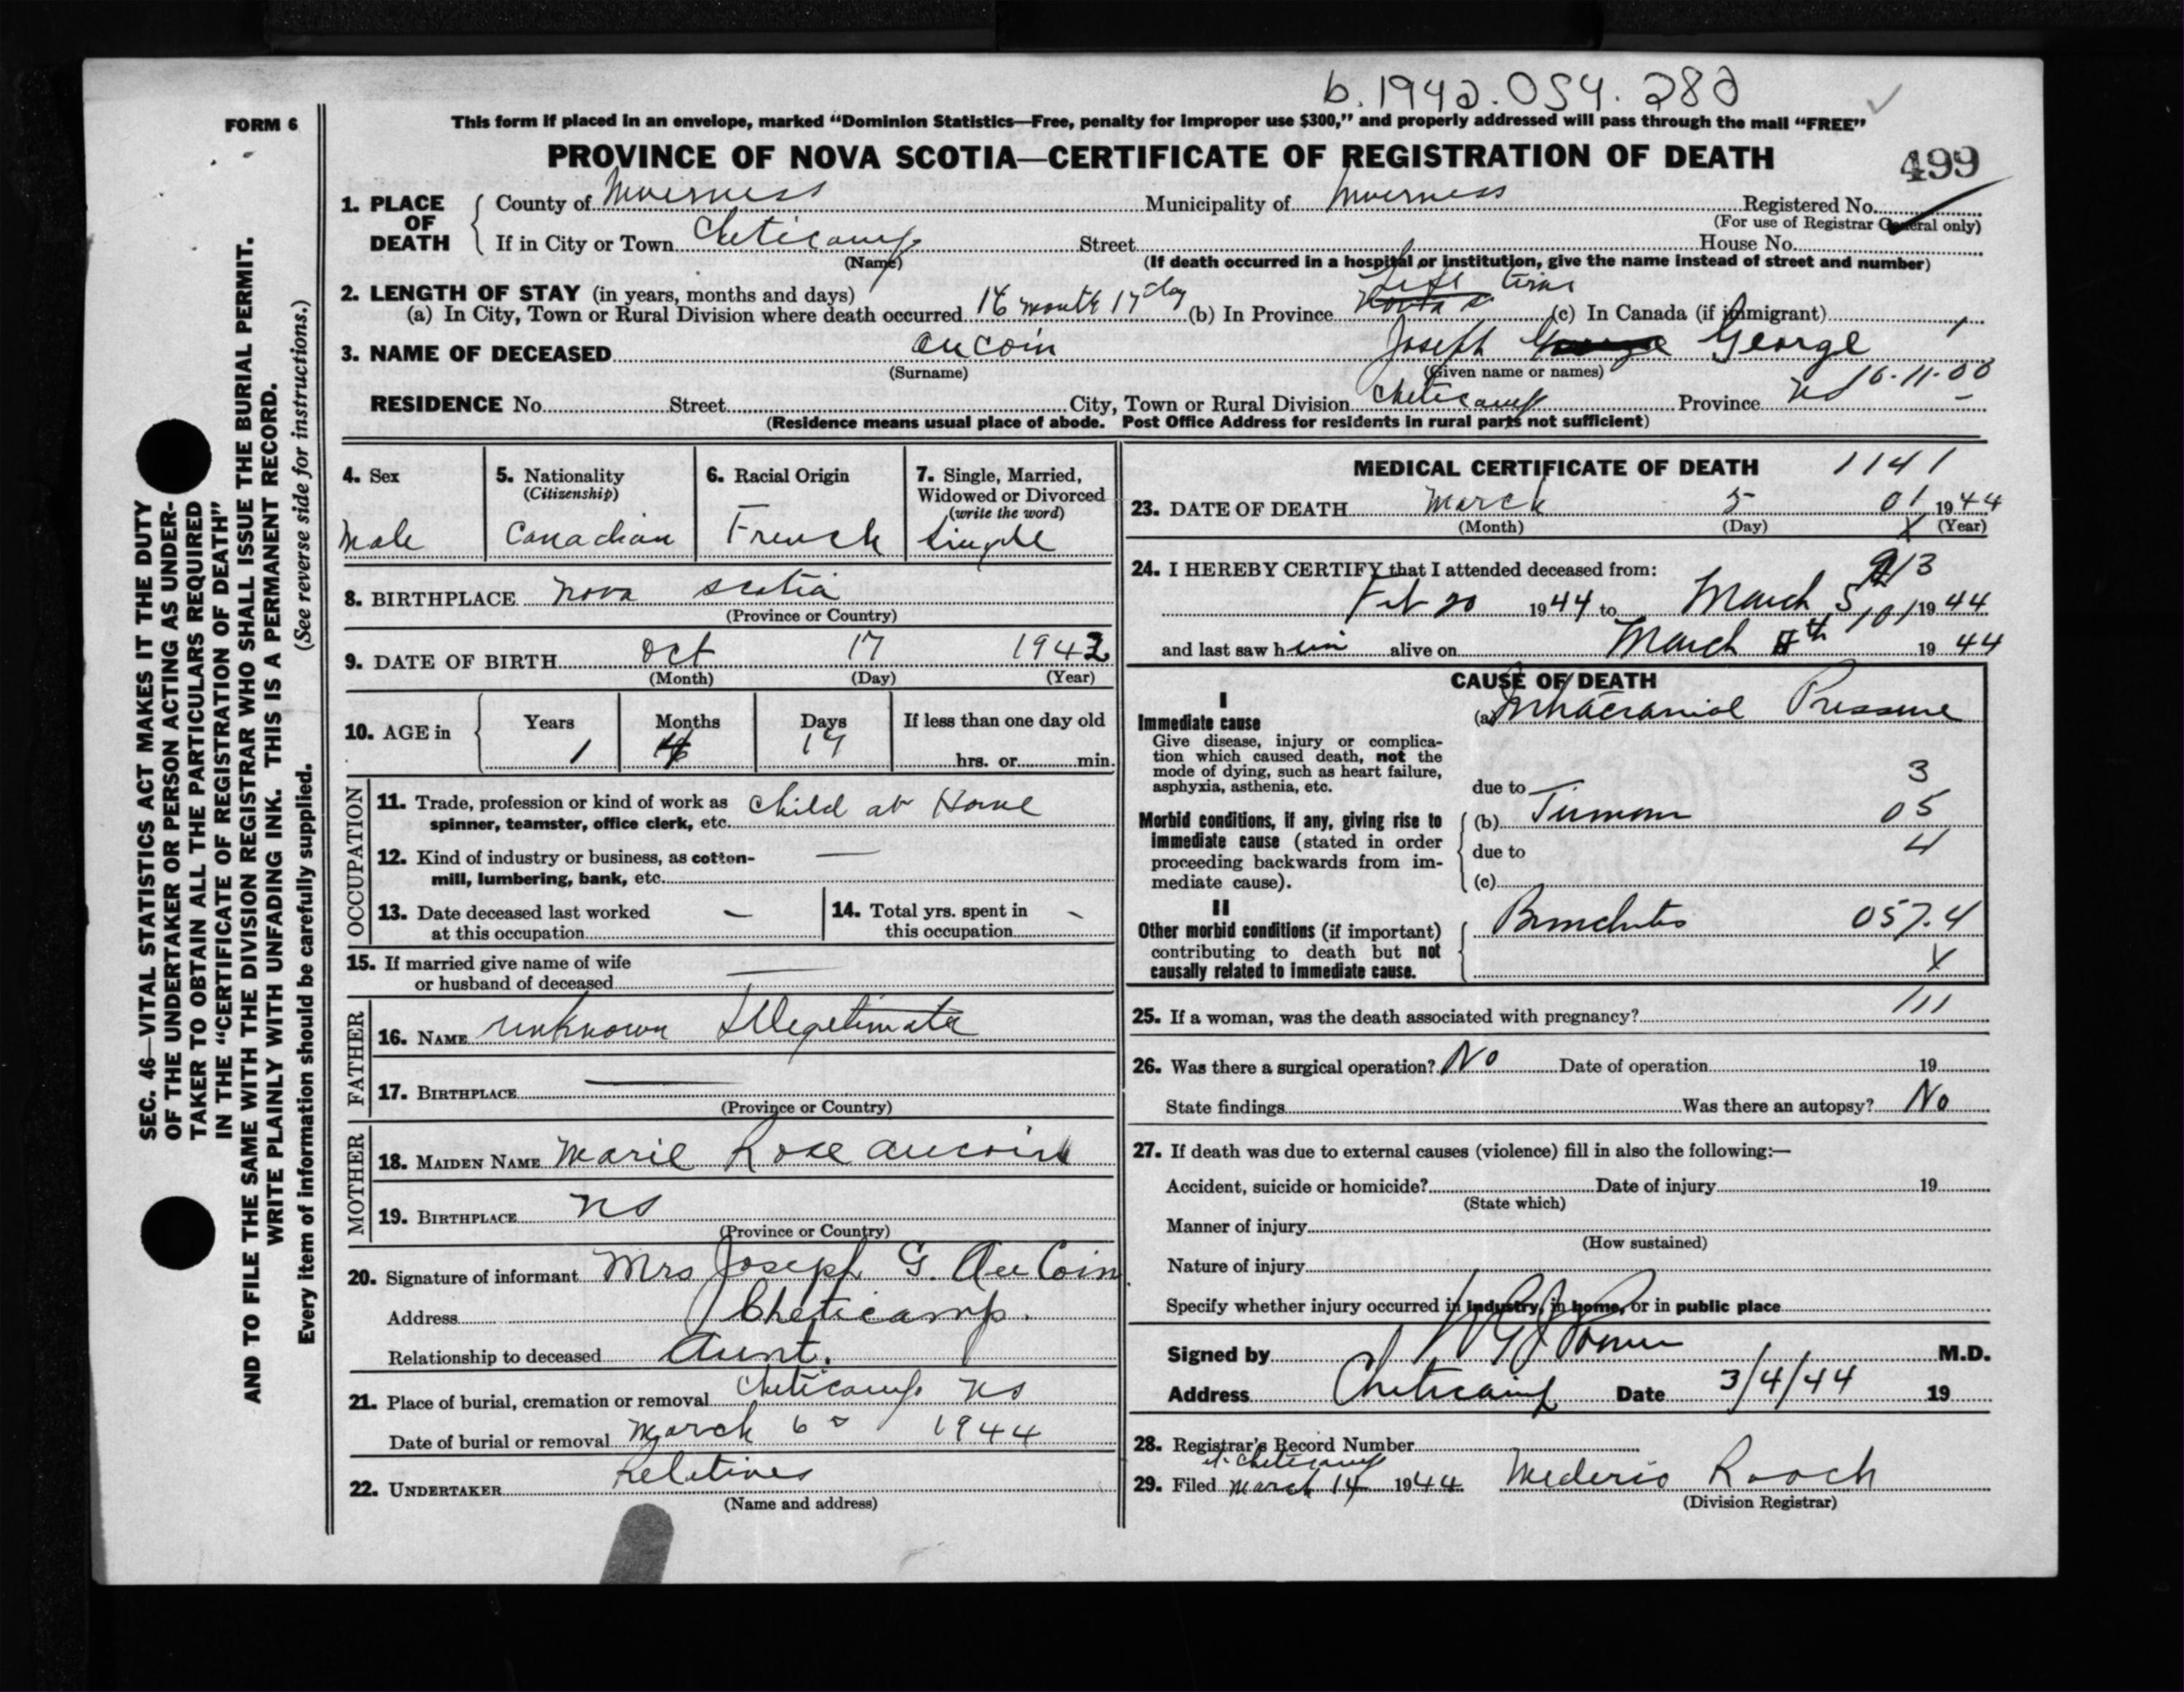 b.1942.054.282
FORM 6
This form if placed in an envelope, marked “Dominion Statistics—Free, penalty for improper use $300,” and properly addressed will pass through the mail “FREE”
PROVINCE OF NOVA SCOTIA—CERTIFICATE OF REGISTRATION OF DEATH
499
1. PLACE OF DEATH
County of Inverness Municipality of Inverness Registered No.
(For use of Registrar General only)
If in City or Town Cheticamp Street House No.
(Name) (If death occurred in a hospital or institution, give the name instead of street and number)
2. LENGTH OF STAY (in years, months and days)
(a) In City, Town or Rural Division where death occurred 16 month 17 day (b) In Province Life time (c) In Canada (if immigrant)
3. NAME OF DECEASED Aucoin Joseph George 1
(Surname) (Given name or names)
16-11-00
RESIDENCE No. Street City, Town or Rural Division Cheticamp Province NS
(Residence means usual place of abode. Post Office Address for residents in rural parts not sufficient)
4. Sex
Male
5. Nationality
(Citizenship)
Canadian
6. Racial Origin
French
7. Single, Married,
Widowed or Divorced
(write the word)
Single
8. BIRTHPLACE Nova Scotia
(Province or Country)
9. DATE OF BIRTH Oct 17 1942
(Month) (Day) (Year)
10. AGE in
Years Months Days If less than one day old
1 4 17 hrs. or min.
OCCUPATION
11. Trade, profession or kind of work as
spinner, teamster, office clerk, etc. Child at Home
12. Kind of industry or business, as cotton-
mill, lumbering, bank, etc. —
13. Date deceased last worked
at this occupation —
14. Total yrs. spent in
this occupation -
15. If married give name of wife
or husband of deceased —
FATHER
16. NAME unknown Illegetimate
17. BIRTHPLACE —
(Province or Country)
MOTHER
18. MAIDEN NAME Marie Rose Aucoin
19. BIRTHPLACE NS
(Province or Country)
20. Signature of informant Mrs Joseph G. AuCoin
Address Cheticamp.
Relationship to deceased Aunt.
21. Place of burial, cremation or removal Cheticamp NS
Date of burial or removal March 6 1944
22. UNDERTAKER Reletives
(Name and address)
MEDICAL CERTIFICATE OF DEATH 1141
23. DATE OF DEATH March 5 01 1944
(Month) (Day) X (Year)
24. I HEREBY CERTIFY that I attended deceased from:
Feb 20 1944 to March 5 1944
and last saw him alive on March 4th 1944
CAUSE OF DEATH
I
Immediate cause
Give disease, injury or complica-
tion which caused death, not the
mode of dying, such as heart failure,
asphyxia, asthenia, etc.
(a) Intracranial Pressure
3
due to
Morbid conditions, if any, giving rise to
immediate cause (stated in order
proceeding backwards from im-
mediate cause).
(b) Tumour 05
due to 4
(c)
II
Other morbid conditions (if important)
contributing to death but not
causally related to immediate cause.
Bronchitis 057.4
X
25. If a woman, was the death associated with pregnancy? 111
26. Was there a surgical operation? No Date of operation 19
State findings Was there an autopsy? No
27. If death was due to external causes (violence) fill in also the following:—
Accident, suicide or homicide? Date of injury 19
(State which)
Manner of injury
(How sustained)
Nature of injury
Specify whether injury occurred in industry, in home, or in public place
Signed by M.D.
Address Cheticamp Date 3/4/44 19
28. Registrar's Record Number
at Cheticamp
29. Filed March 14 1944 Mederic Roach
(Division Registrar)
SEC. 46—VITAL STATISTICS ACT MAKES IT THE DUTY
OF THE UNDERTAKER OR PERSON ACTING AS UNDER-
TAKER TO OBTAIN ALL THE PARTICULARS REQUIRED
IN THE “CERTIFICATE OF REGISTRATION OF DEATH”
AND TO FILE THE SAME WITH THE DIVISION REGISTRAR WHO SHALL ISSUE THE BURIAL PERMIT.
WRITE PLAINLY WITH UNFADING INK. THIS IS A PERMANENT RECORD.
Every item of information should be carefully supplied. (See reverse side for instructions.)